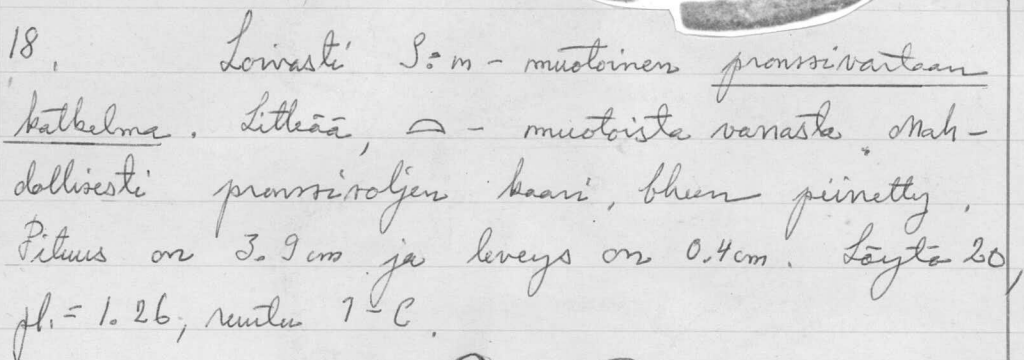 18. Loivasti S:m - muotoinen pronssivartaan
katkelma. Litteää, ⌓ - muotoista varrasta. Mah-
dollisesti pronssisoljen kaari, ohueen piinetty.
Pituus on 3.9 cm ja leveys on 0.4 cm. Löytö 20,
pl. = 1.26, ruutu 1 - C.